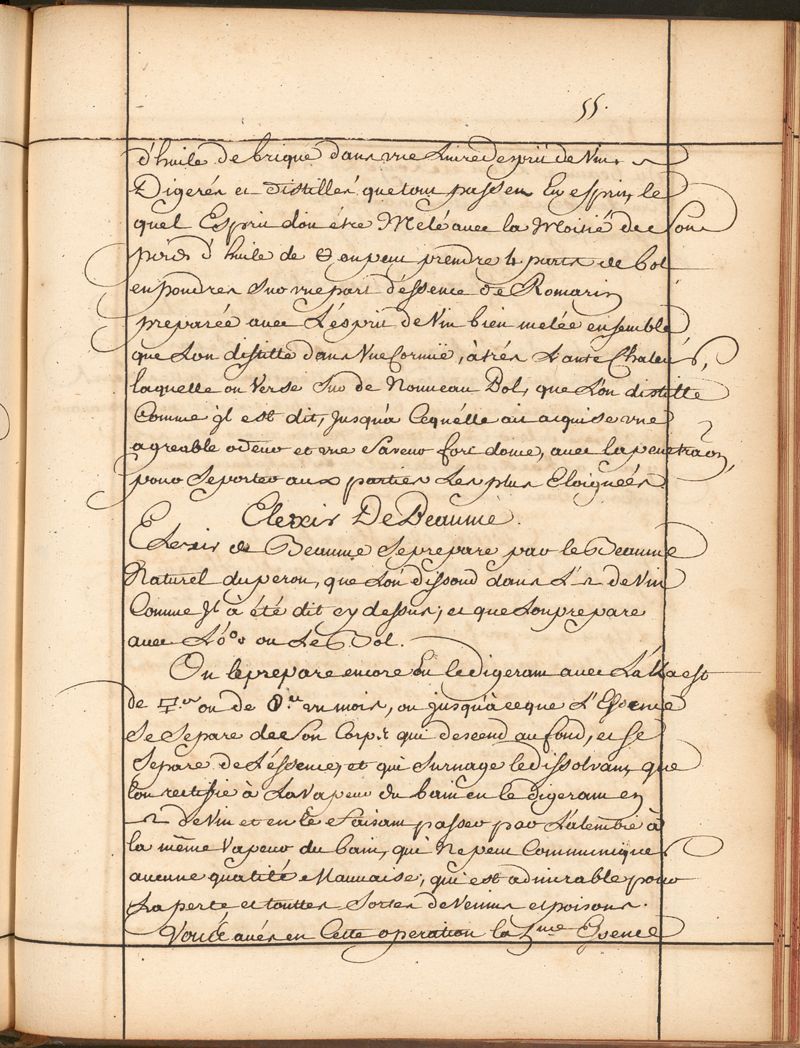 55.
d'huile de brique dans une Livre d'esprit de Vin,
Digerés et distillés que tout passe en Esprit, le
quel Esprit doit étre Melé avec la Moitié de Son
poids d'huile de on peut prendre 4 parts de bol
en poudres Sur une part d'éssence de Romarin
preparée avec L'ésprit de Vin bien melée ensemble
que Lon distille dans Une Cornüe, à trés Lante Chaleur,
laquelle on Verse Sur de Nouveau Bol, que L'on distille
Comme jl est dit, jusqu'a Cequ'elle ait acquise une
agreable odeur et une Saveur fort douce, avec la penetraõn,
pour Se porter aux parties Les plus Eloignées
Elexir De Beaume.
Elexir de Beaume Se prepare par le Beaume
Naturel du perou, que L'on dissoud dans L' de Vin
Comme Jl à été dit cy dessus, et que Lon prepare
avec L' ou Le Bol.
On le prepare encore En le digerant avec L'Alkaest
de ou de un mois, ou jusqu'à ce que L'Essence
Se Separe de Son Corps qui descend au fond, et Se
Separe de L'éssence, et qui Surnage le dissolvant, que
Lon rectifie à La Vapeur du bain en le digerant en
de Vin et en le faisant passer par L'alembic à
la même Vapeur du bain, qui Ne peut Communiquer
aucune qualité Mauvaise, qui est admirable pour
La perte et touttes Sortes de Venins et poisons.
Voucé avés en Cette operation la Essence